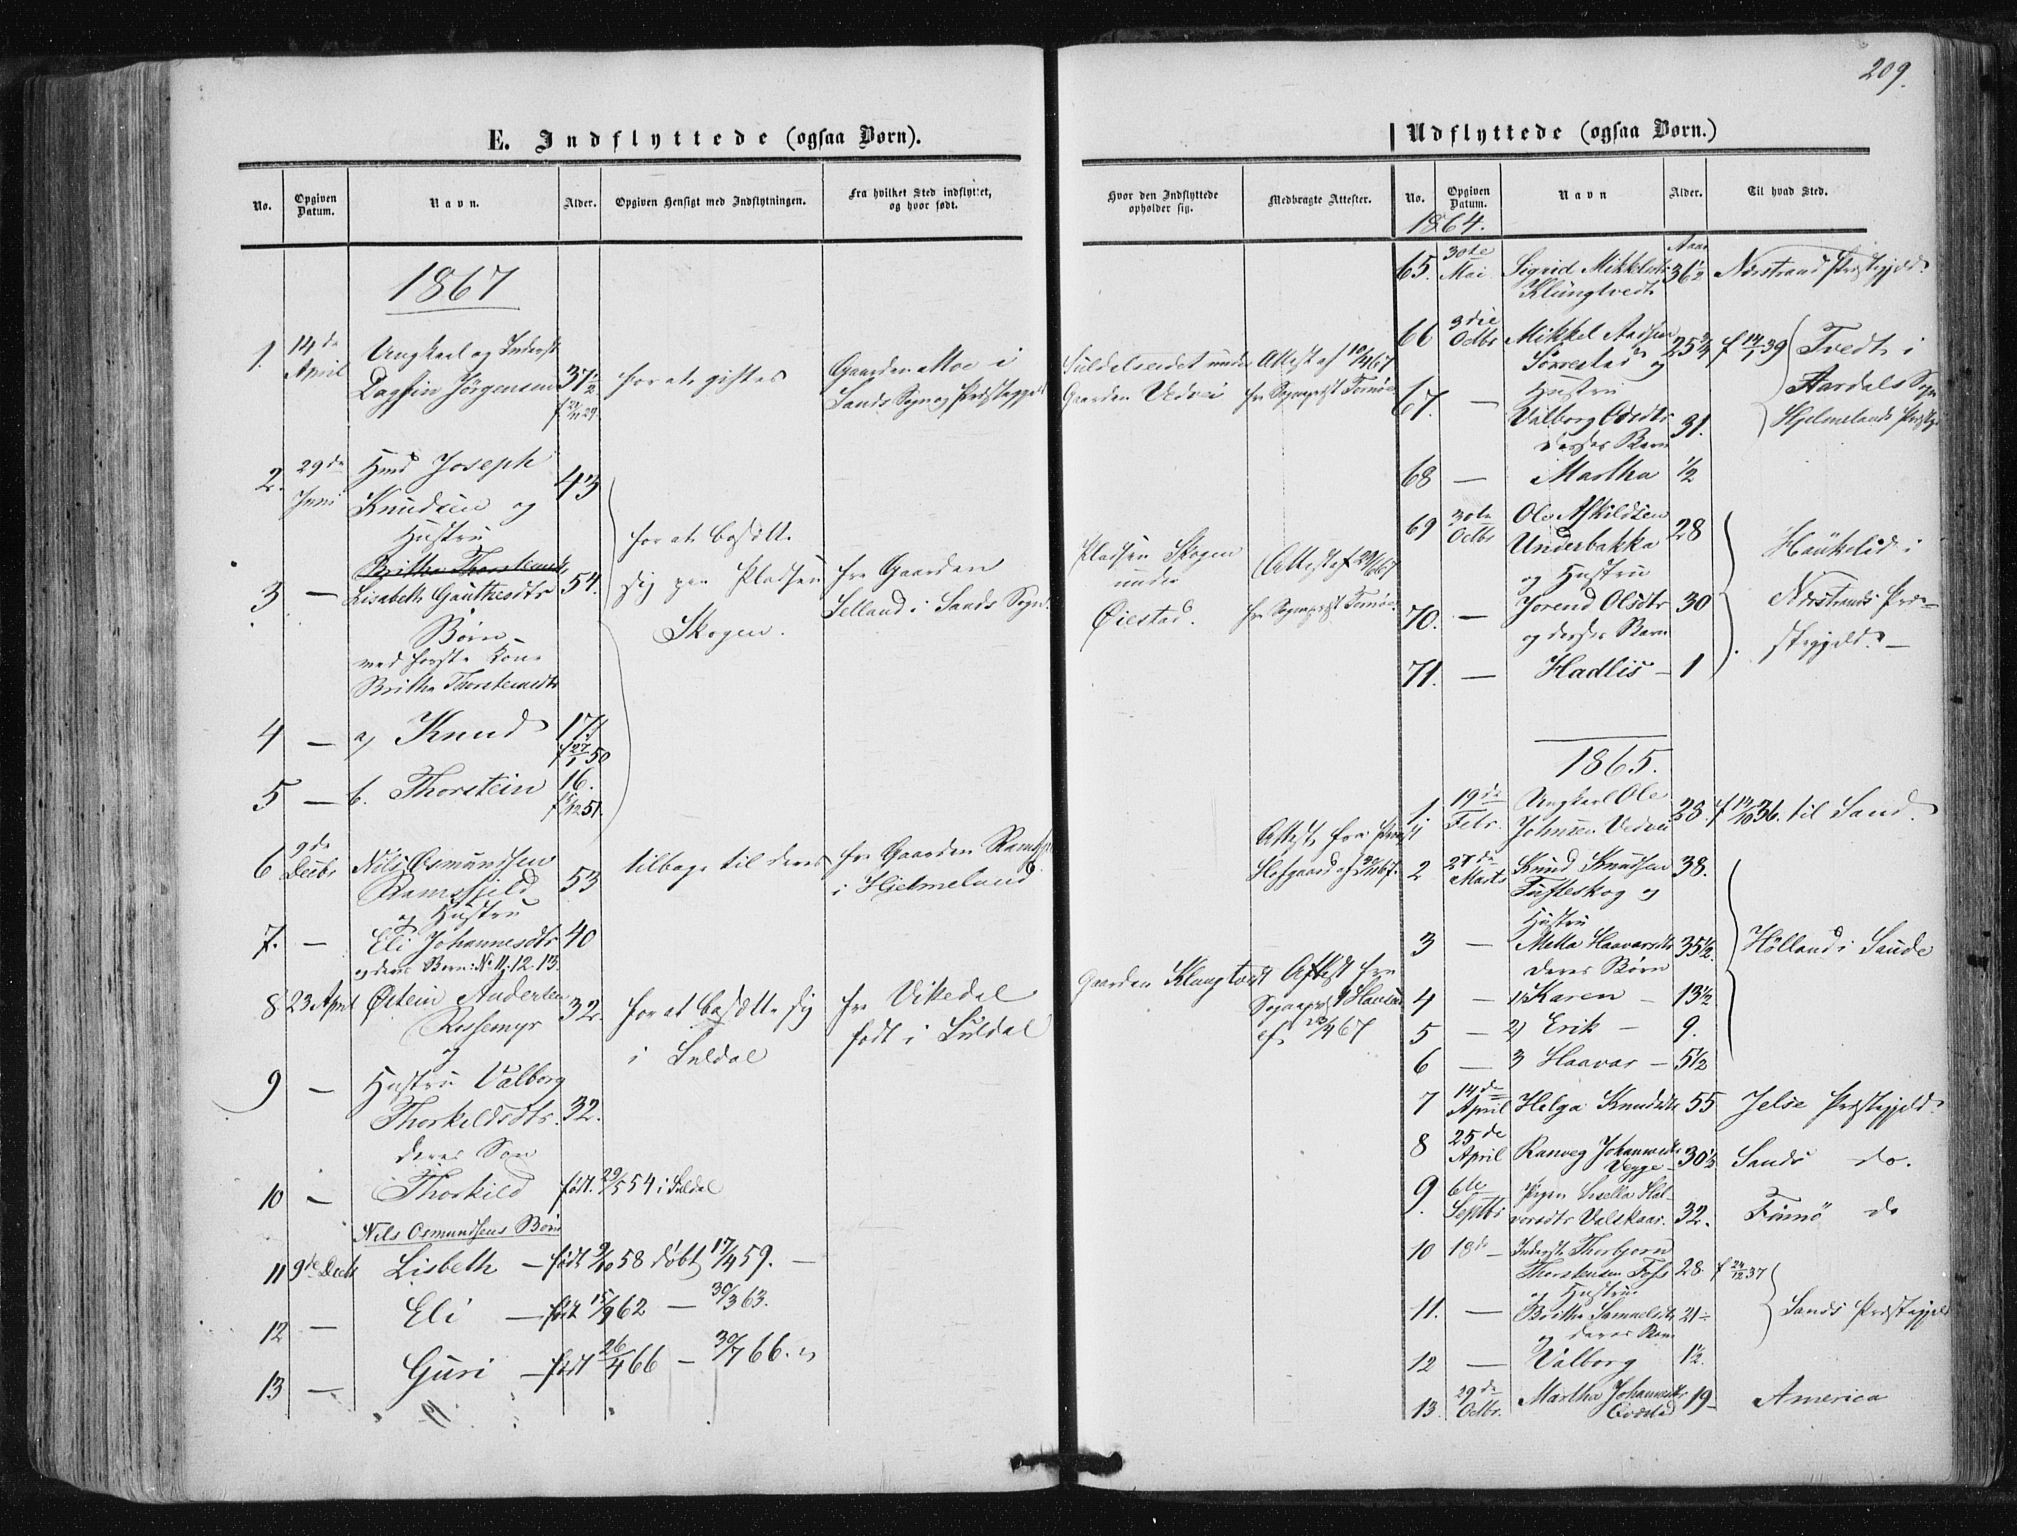 209.
E. Indflyttede (ogsaa Børn).
No. Opgiven Datum. Navn. Alder. Opgiven Hensigt med Indflytningen. Fra hvilket Sted indflyttet, og hvor født.
Hvor den Indflyttede opholder sig. Medbragte Attester.
1867
1. 14de April Ungkarl og Inderst
Dagfin Jörgensen 37½ for at giftes Gaarden Moe i
Sands Sogn og Præstegjeld
Suldelseidet under Gaarden Vedvei
Attest af 10/4 67
fr Sogneprest
2. 29de Juni Hmd Joseph
Knudsen og 43
Hustru
Britha Thorstensdtr
3 — Lisabeth Gauthesdtr 54.
for at bosætte
sig paa Pladsen
Skogen.
fra Gaarden
Selland i Sands Sogn.
Pladsen Skogen
under
Øiestad.
Attest af 29/6 67
fr Sogneprest
Børn
med første Kone
Britha Thorstensdtr
4 — a) Knud 17
f 27/1 50
5 — b. Thorstein 16.
6 9de Decbr Nils Osmundsen
Ramsfjeld 53
og Hustru
tilbage til deres
fra Gaarden
i Hjelmeland
Attest fra
Hofgaard af
7. — Eli Johannesdtr 40
og deres Børn: No 11. 12. 13.
8 23 April Østein Andersen 32.
Rossemyr
og
for at bosætte sig
i Suldal
fra Vikedal
født i Suldal
Gaarden Klungtvedt Attest fra
Sogneprest Hansen
af 23/4 67
9 — Hustru Valborg
Thorkildsdtr. 32.
deres Søn
10 — Thorkild født. 29/5 54 i Suldal
Nils Osmundsens Børn
11 9de Decbr Lisbeth — født 9/10 58 døbt 17/4 59. —
12 — Eli — født 15/9 62 — 30/3 63.
13 — Guri — født 26/4 66 — 30/7 66.
Udflyttede (ogsaa Børn.)
No. Opgiven Datum. Navn Alder. Til hvad Sted.
1864.
65. 30te Mai Sigrid Mikkelsdtr
Klungtvedt Aar 36½ Nærstrand Præstegjeld.
66 3die Octbr Mikkel Aadsen
Sörestad og 25¾ f 14/1 39
67. — Hustru
Valborg 31.
deres Barn
68 — Martha ½
Tvedt i
Aardals Sogn
Hjelmelands Præstegj.
69 30te Octbr Ole Askildsen
Underbakka 28
og Hustru
70. — Jorend Olsdtr 30
og deres Barn
71. — Hadlis — 1
Haukelid i
Nærstrands Præ-
stegjeld. —
1865.
1. 19de Febr. Ungkarl Ole
Johnsen Vedvei 28 f 14/10 36. til Sand.
2 27de Marts Knud Knudsen 38.
Tufteskog og
Hustru
3 — Metta Haavarsdtr 35½.
deres Børn
4 — 1) Karen — 13½
5 — 2) Erik — 9.
6 — 3 Haavar — 5½
Hølland i Saude
7 14de April Helga Knudsdtr 55 Jelse Præstegjeld.
8 25de April Ranveg Johannesdtr
Vegge — 30½ Sands do.
9. 6te Septbr Pigen Sisella Hal-
vorsdtr Valskaar. 32. Finnö do
10 18de — Inderst Thorbjørn
Thorstensen Foss 28 f 24/12 37
og Hustru
11. — Britha Samuelsdtr 21
og deres Barn
12 — Valborg 1½.
Sands Præstegjeld
13. 29de Octbr. Martha Johannesdtr
19 — America